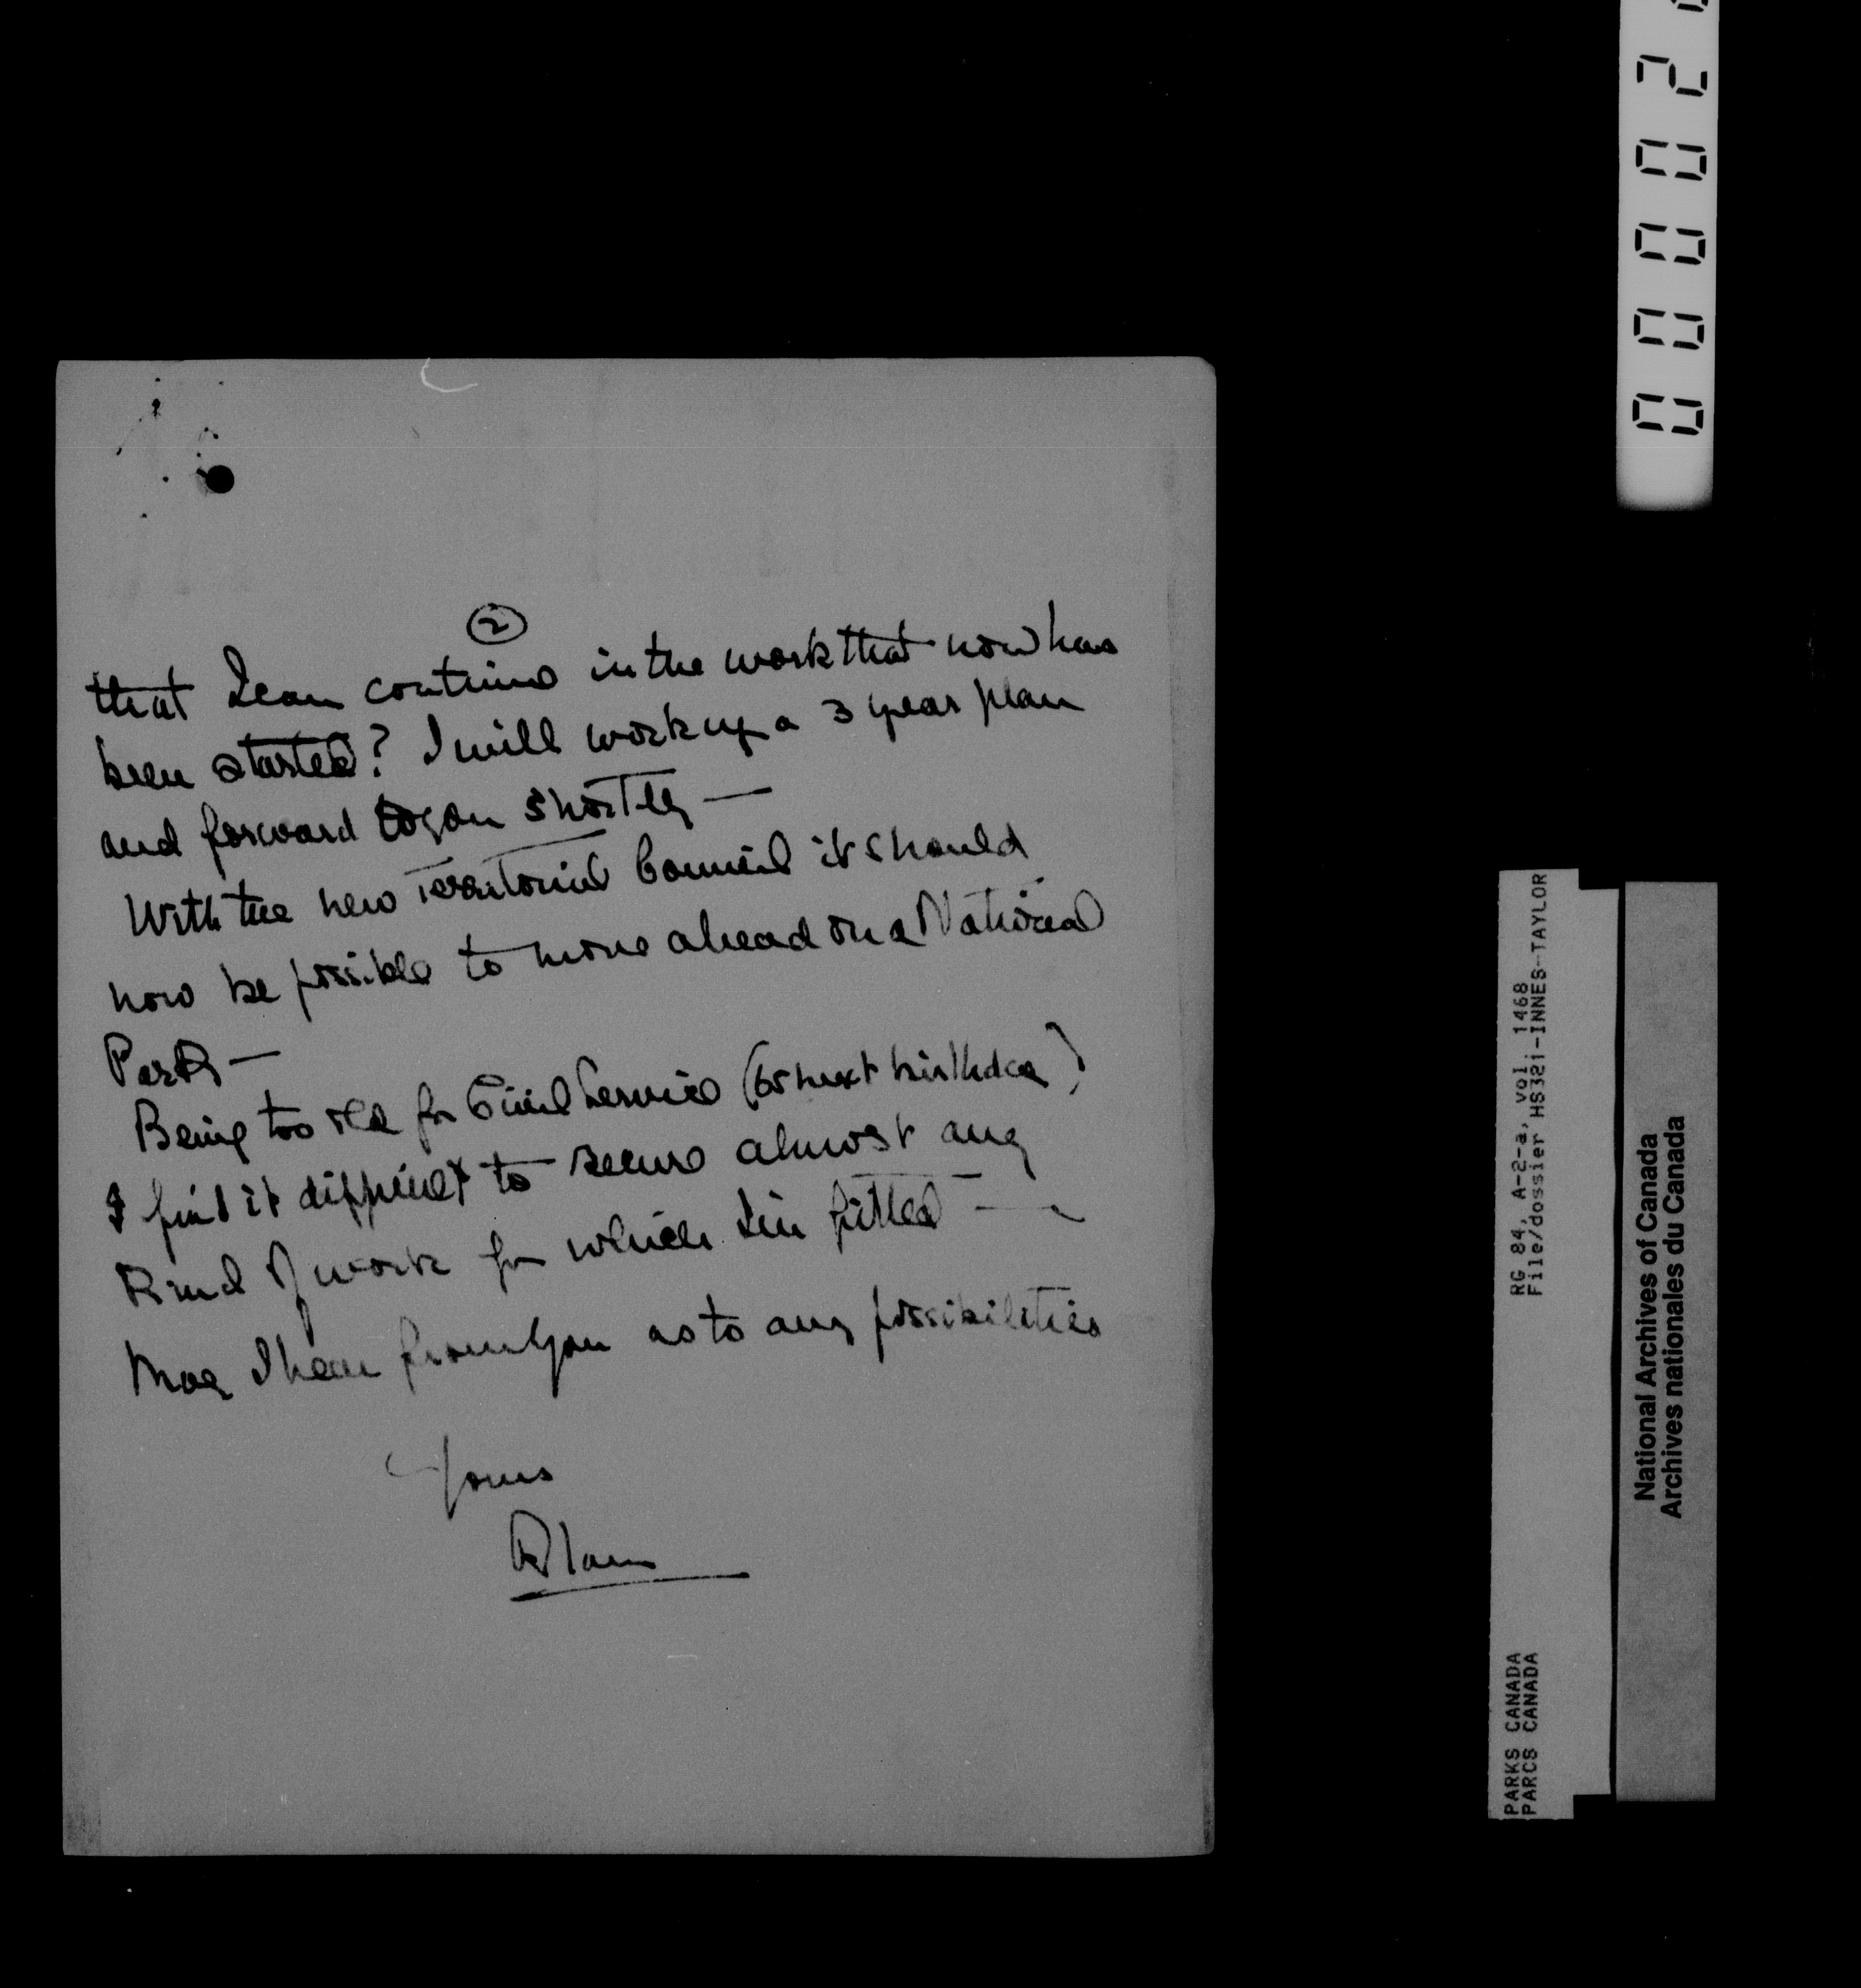 ②
that I can continue in the work that now has
been started? I will work up a 3 year plan
and forward to you shortly —
With the new Territorial Council it should
now be possible to move ahead on a National
Park —
Being too old for Civil Service (65 next birthday)
I find it difficult to secure almost any
kind of work for which I'm fitted —
May I hear from you as to any possibilities
Yours
Alan
00002
RG 84, A-2-a, vol. 1468
File/dossier HS321-INNES-TAYLOR
PARKS CANADA
PARCS CANADA
National Archives of Canada
Archives nationales du Canada